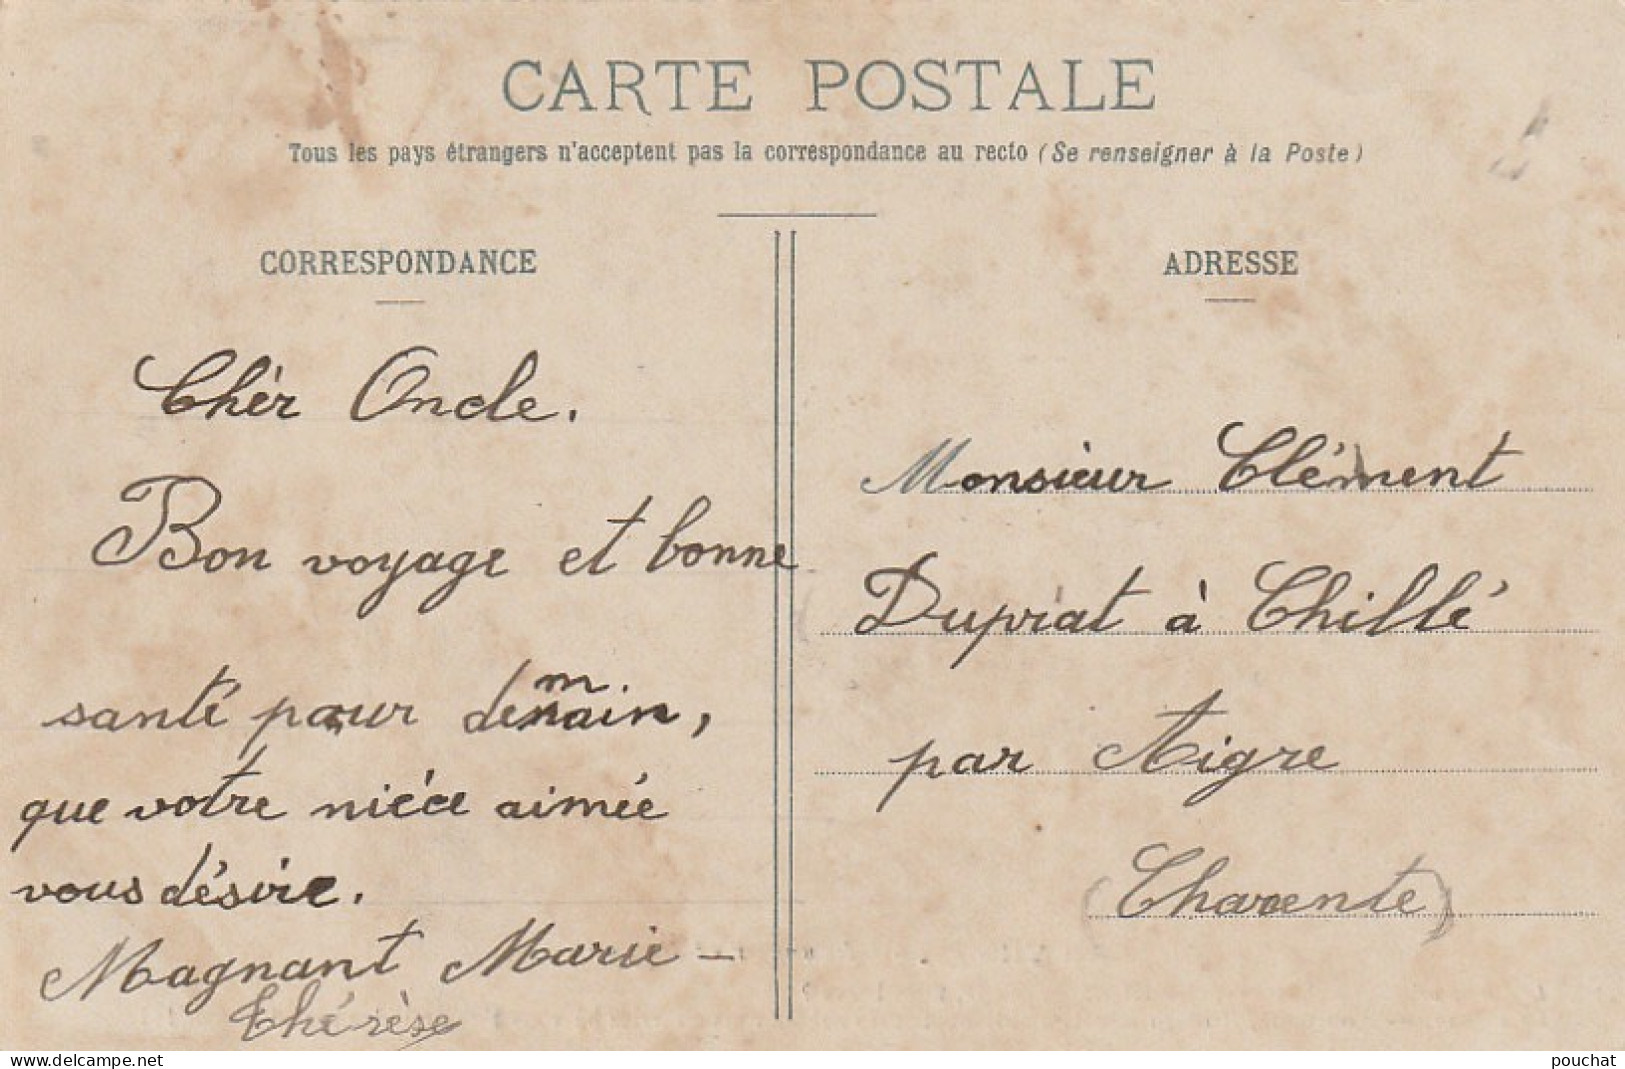 CARTE POSTALE
Tous les pays étrangers n'acceptent pas la correspondance au recto (Se renseigner à la Poste)
CORRESPONDANCE
Chèr Oncle.
Bon voyage et bonne
santé pour demain,
que votre nièce aimée
vous désire.
Magnant Marie-
Thérèse
ADRESSE
Monsieur Clément
Duprat à Chillé
par Aigre
(Charente)
www.delcampe.net
pouchat